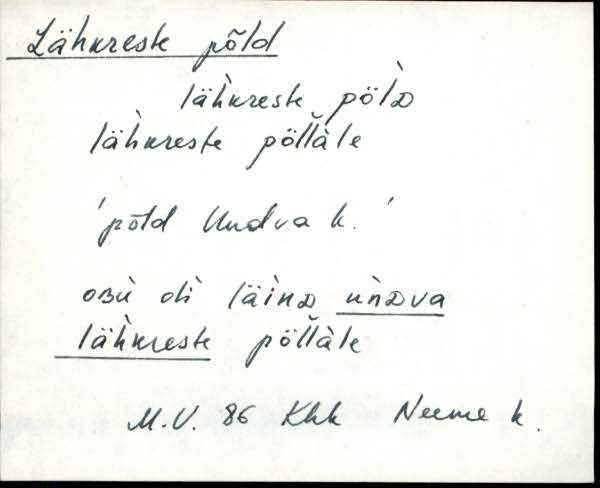 Lähkreste põld
lähkreste põlD
lähkreste põllale
'põld Undva k.'
osü oli läinD unDva
lähkreste põllale
M.V. 86 Khk Neeme k.